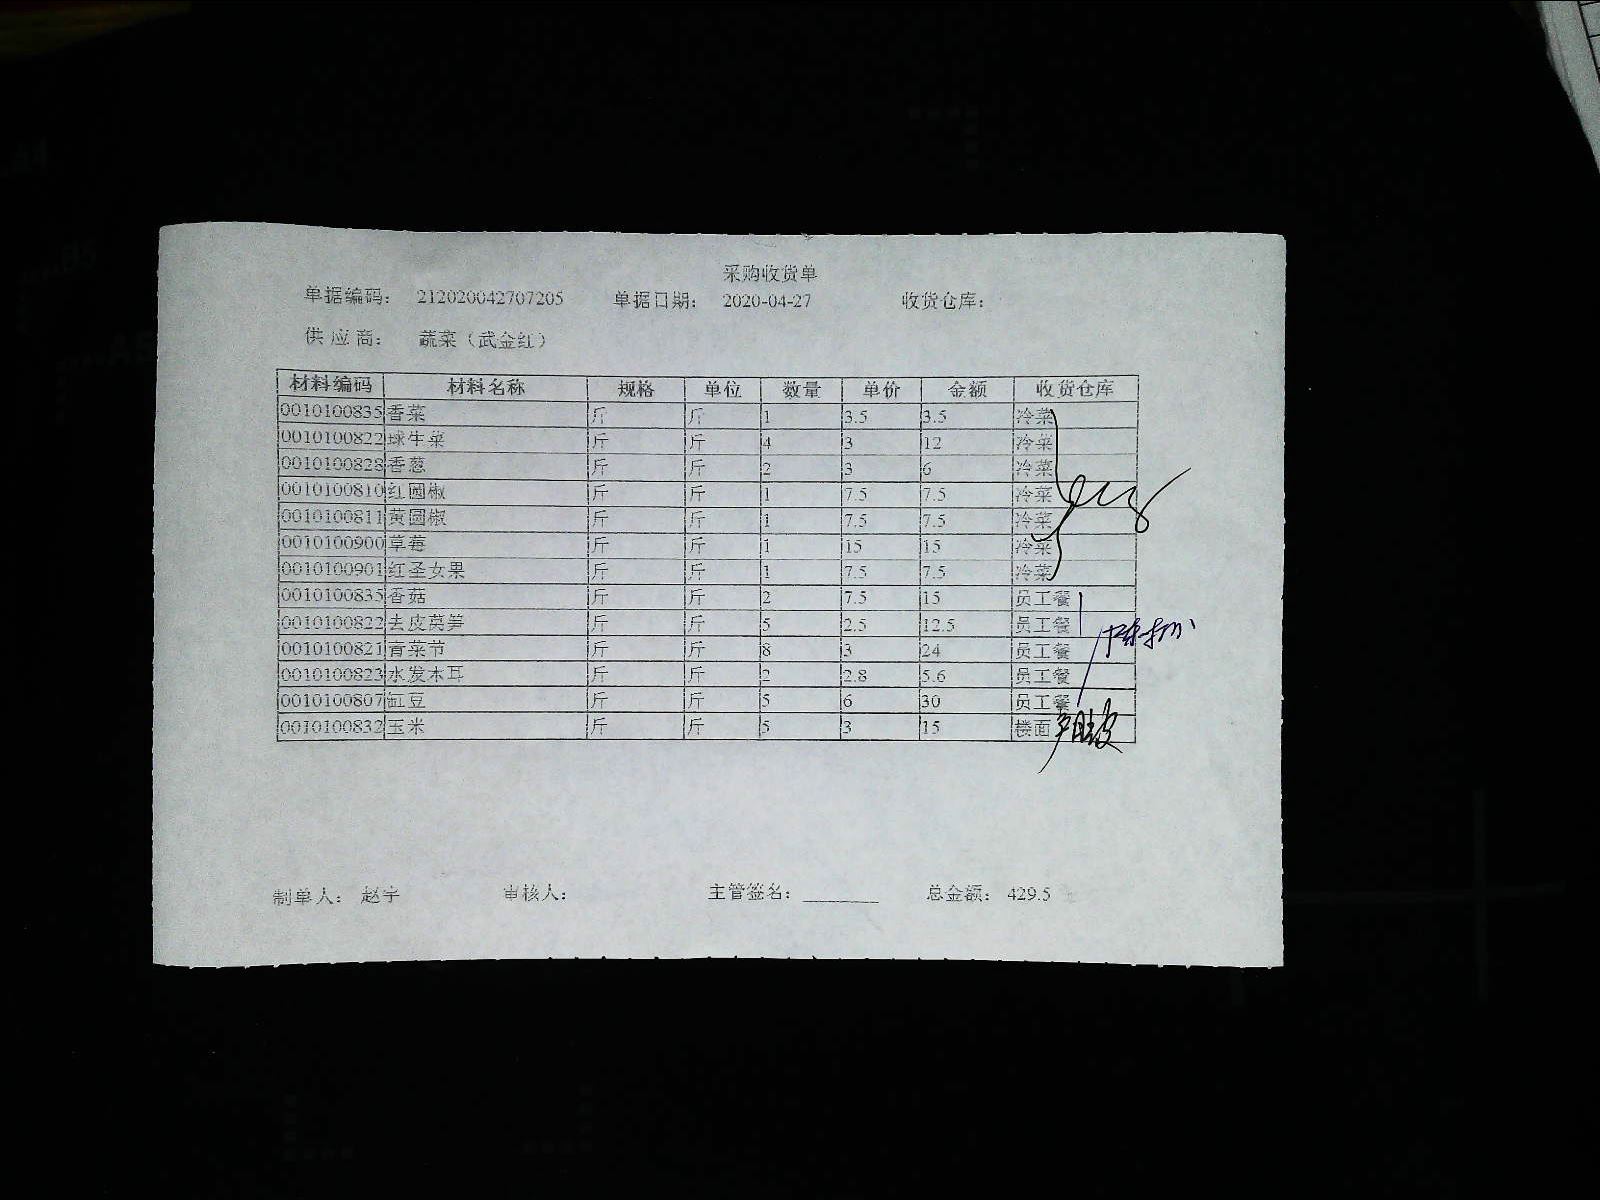 采购收货单
单据编码： 212020042707205 单据日期： 2020-04-27 收货仓库：
供 应 商： 蔬菜（武金红）
材料编码 材料名称 规格 单位 数量 单价 金额 收货仓库
0010100835 香菜 斤 斤 1 3.5 3.5 冷菜
0010100822 球生菜 斤 斤 4 3 12 冷菜
0010100828 香葱 斤 斤 2 3 6 冷菜
0010100810 红圆椒 斤 斤 1 7.5 7.5 冷菜
0010100811 黄圆椒 斤 斤 1 7.5 7.5 冷菜
0010100900 草莓 斤 斤 1 15 15 冷菜
0010100901 红圣女果 斤 斤 1 7.5 7.5 冷菜
0010100835 香菇 斤 斤 2 7.5 15 员工餐
0010100822 去皮莴笋 斤 斤 5 2.5 12.5 员工餐
0010100821 青菜节 斤 斤 8 3 24 员工餐
0010100823 水发木耳 斤 斤 2 2.8 5.6 员工餐
0010100807 缸豆 斤 斤 5 6 30 员工餐
0010100832 玉米 斤 斤 5 3 15 楼面
制单人： 赵宇 审核人： 主管签名： 总金额： 429.5